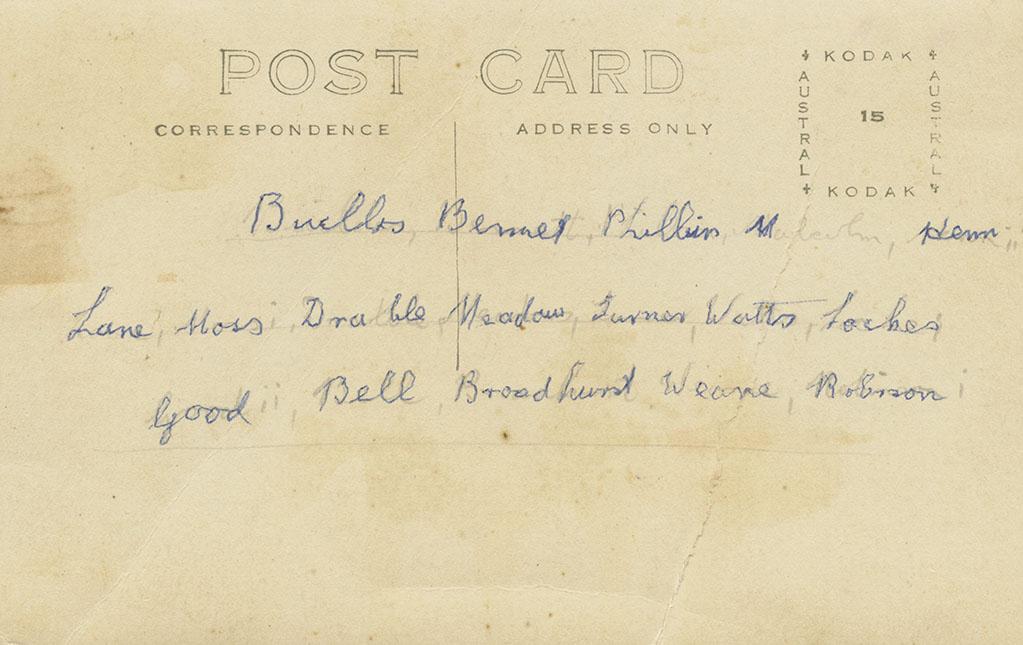 POST CARD
CORRESPONDENCE
ADDRESS ONLY
KODAK
AUSTRAL
15
AUSTRAL
KODAK
Buellos, Bennet, Phillips, Malcolm, Henn
Lane, Moss, Drabble, Meadow, Turner, Watts, Lockes
Good ii, Bell, Broadhurst, Weane, Robison i